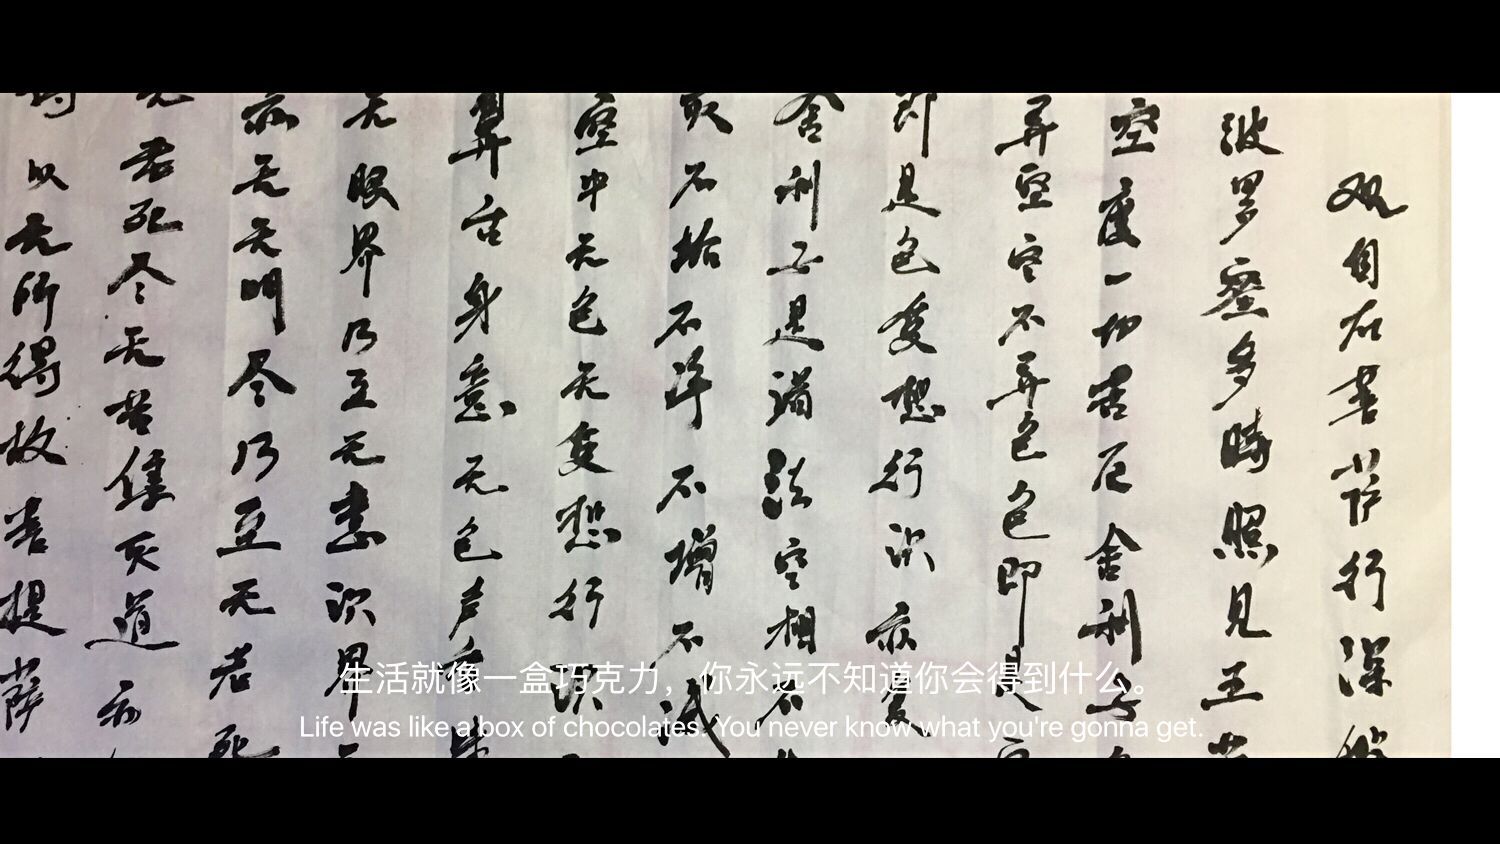 观自在菩萨行深般
波罗蜜多時照见五
空度一切苦厄舍利子
异空空不异色色即是空
即是色受想行识亦复
舍利子是诸法空相不
不垢不净不增不减
空中无色无受想行识
鼻舌身意无色声香味
无眼界乃至无意识界无
亦无无明尽乃至无老死
无老死尽无苦集灭道亦
得以无所得故菩提萨
生活就像一盒巧克力，你永远不知道你会得到什么。
Life was like a box of chocolates. You never know what you're gonna get.